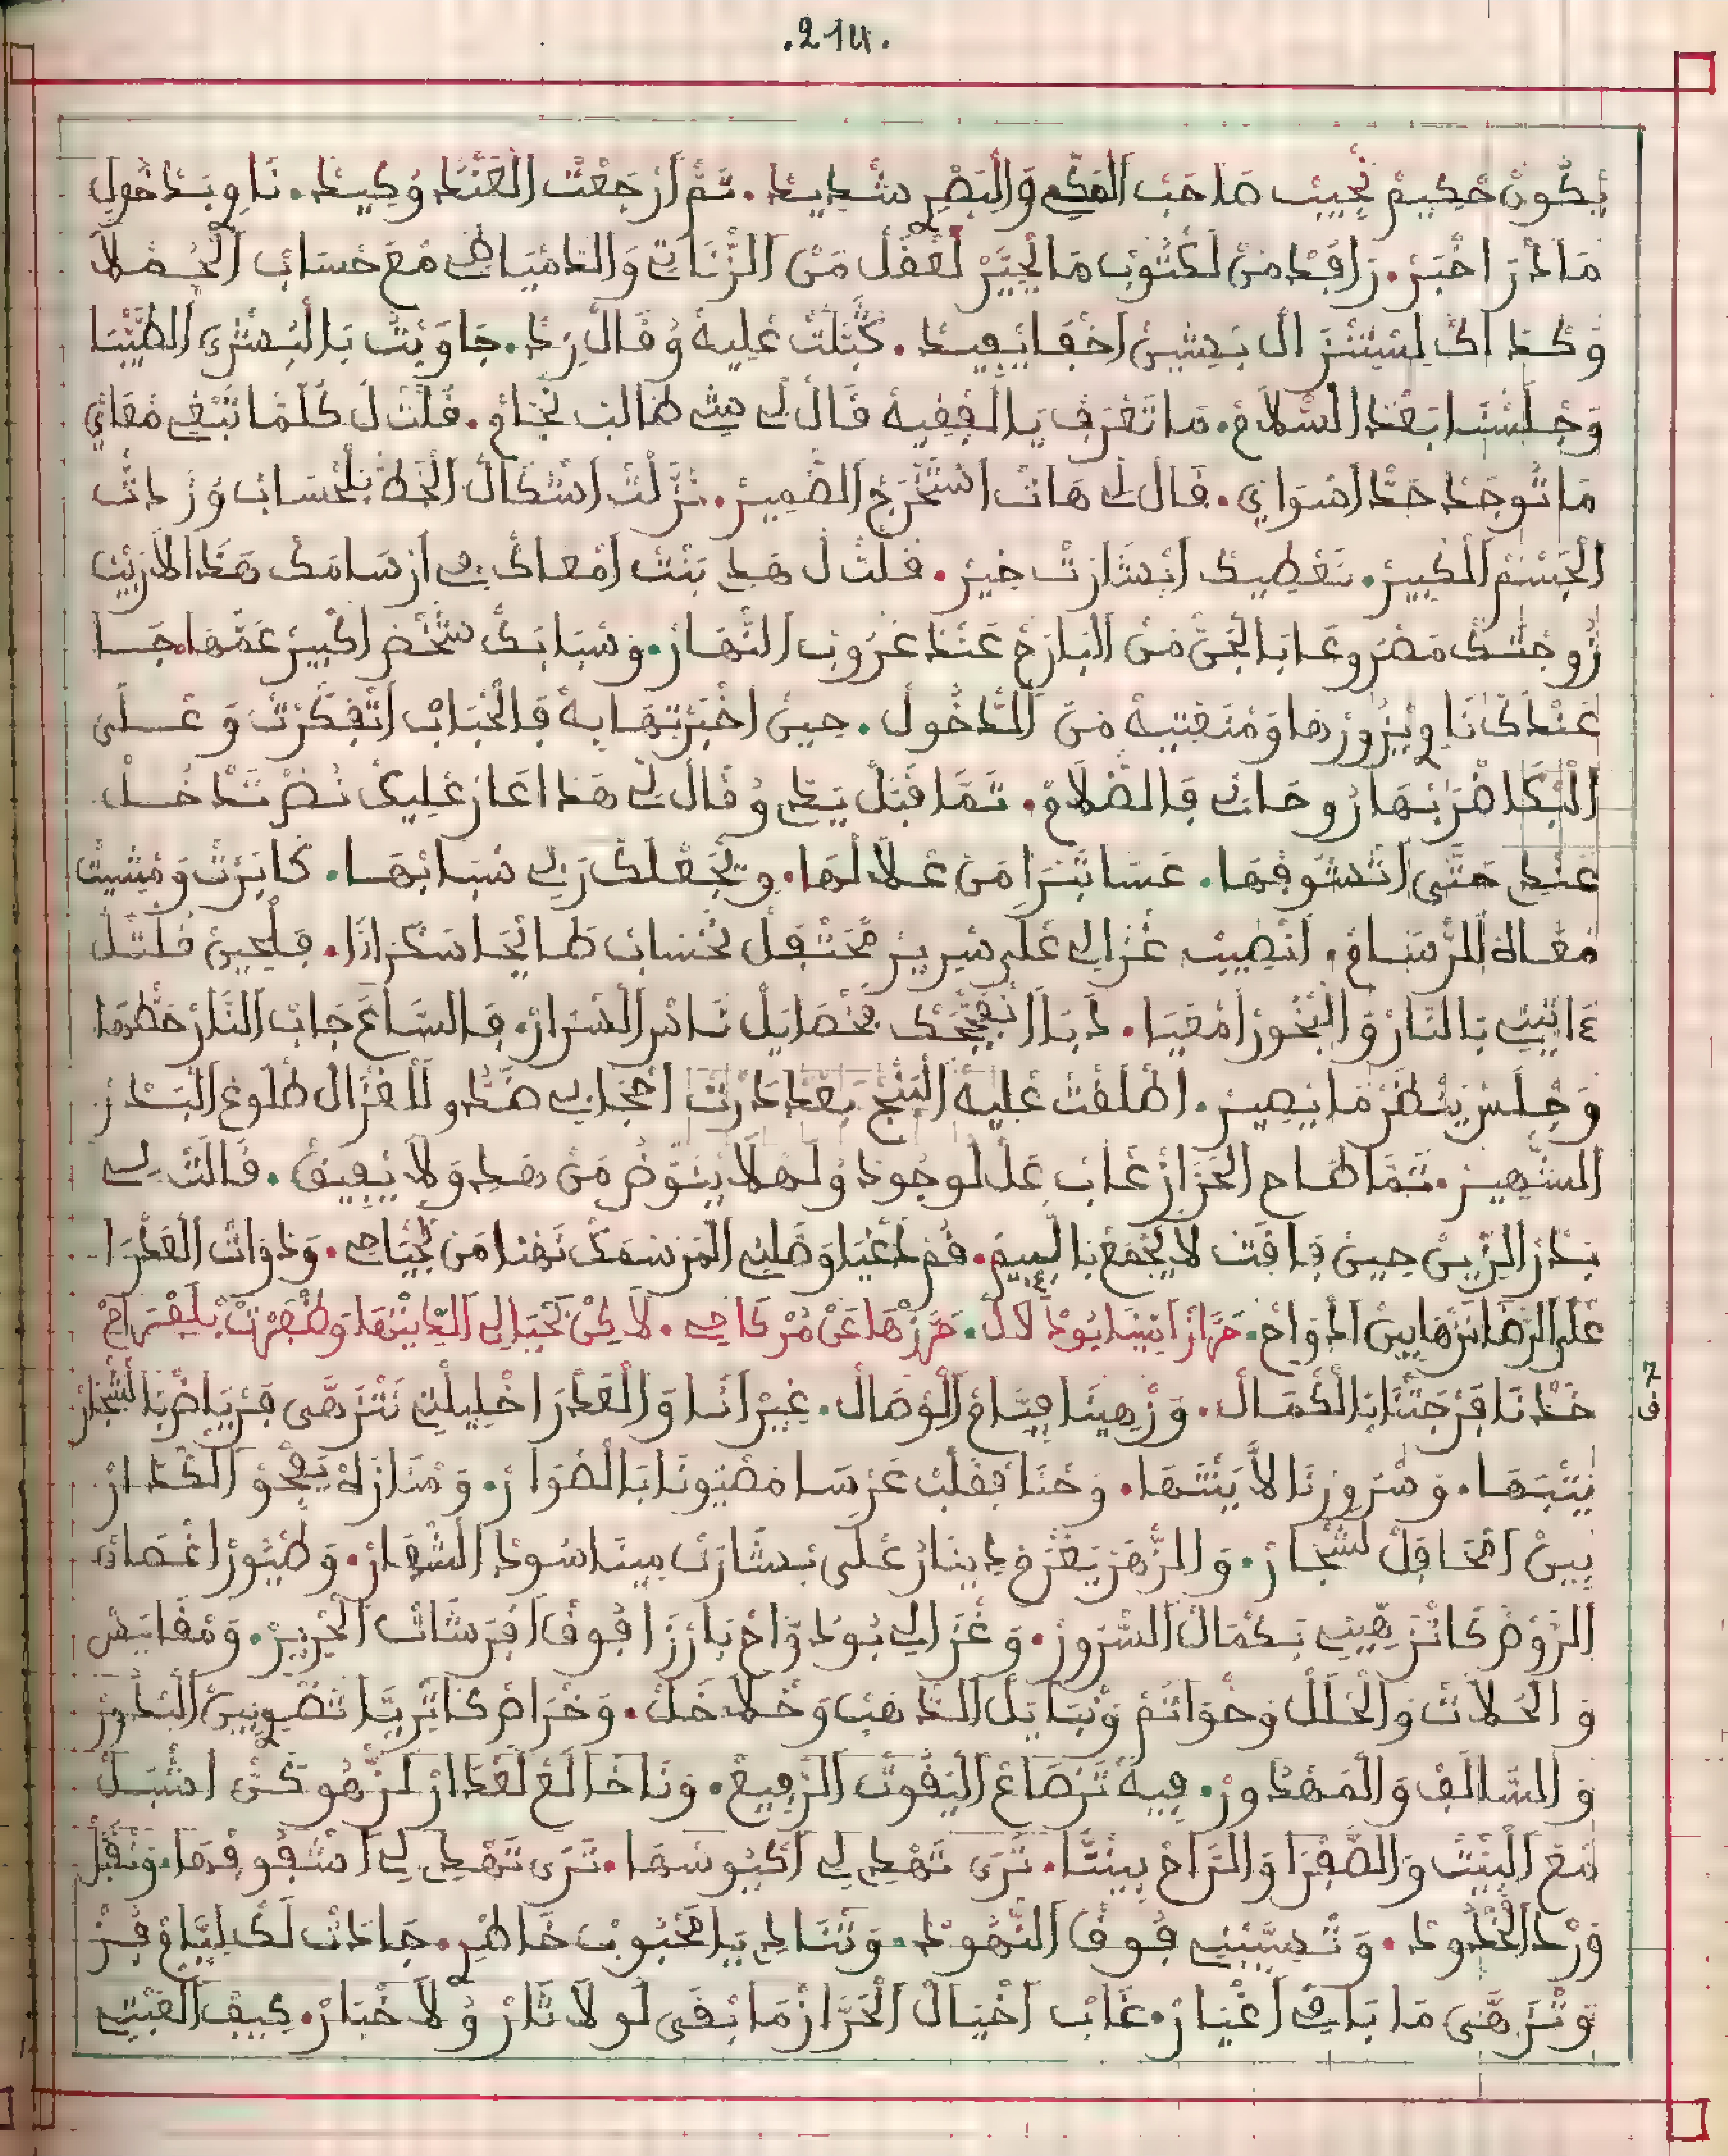 .214.
يكون حكيم نجيب صاحب الفكر والبصر شديد. ثم ارجعت العندو كيد. ناوي بدخول
ما دار اخبر. رافد من لكتوب ما يحير لعقل من الزناتي والدمياطي مع حساب الجملا
وكداك لستنزال بهشين اخفايفيد. كبلت عليه وقال زد. جاوبت بالبشرى الطيبا
وجلسنا بعد السلام. ما تعرف يا لفقيه قال لي شي طالب نجام. قلت ل كلما تبغي معاي
ما توجد حد اسواي. قال لي هات استخرج الضمير. نزلت اشكال الخط بلحساب وزدت
الجسم الكبير. نعطيك ابشارت خير. قلت ل هدي بنت امعاك في ارسامك هذا لاريب
زوجتك مضروعا بالجن من البارح عند غروب النهار. وسبابك شخص اكبير عمها جا
عندك ناوي يزورها ومنعتيه من الدخول. حين اخبرتها به فالحباب اتفكرت وعلى
البكا ضربها روحاني فالضلام. تما قبل يدي وقال لي هذا عار عليك نض تدخل
عندي حتى اتشوفها. عسا تبرا من علالها. ويجعلك ربي سبابها. كابرت ومشيت
معاه للرسام. انصيب غزالي على سرير محتفل بحساب طايحا سكرانا. فلحين قلتل
ءاتيني بالنار والبخور امعيا. دبا نفجحك بخصايل ناس السرار. فالساع جاب النار حطها
وجلس ينطر ما يصير. اطلقت عليه البنج بعدا درت احجابي ضد و للغزال طلوع البدر
الشهير. تما طاح الحراز غاب عل لوجود ولهلا ينوض من هدي ولا يفيق. قالت لي
بدر الزين حين فاقت لا يجمع بالسيم. قم دغيا وصلني المرسمك نهنا من لجياحي. ودوات العدرا
على الرضا نزها بين ادواح. حراز انيسا بودلال. حرزها عن مركاحي. لاكن بحيالي الدايتها وظفرت بلفراح
خدنا فرجتنا بالكمال. وزهينا فيام الوصال. غير انا والعدرا خليلتي نتزهى فرياض بالشجار
نيتها. وسرورنا لا ينتها. وحنا فقلب عرسا مضيونا بالضوار. ومنازه يفجو الكدار
بين امحافل لشجار. والزهر يغرم دينار على بشارت مينا سود الشفار. وطيور اغصان
الروض كاتزهيني بكمال السرور. وغزالي بودواح بارزا فوق افرشات الحرير. ومقايس
والحلات والحلل وخواتم ونبايل الذهب وخلاخل. وخراص كاتريا تضوي بين البدور
والسالف والمهدور. فيه ترصاع اليقوت الرفيع. وناخالع لعدار لزهو كن اشبل
مع البنت والصفرا والراح بيننا. ترى تهدي لي اكيوسها. ترى تهدي لي اشفوفها. ونقبل
ورد الخدود. وتسيبني فوق النهود. وتنادي يا محبوب خاطري. جادت لك ليام فز
وتزهى ما باقي اغيار. غاب اخيال الحراز ما بقى لو لا تار ولا خبار. كيف العبتي
ف